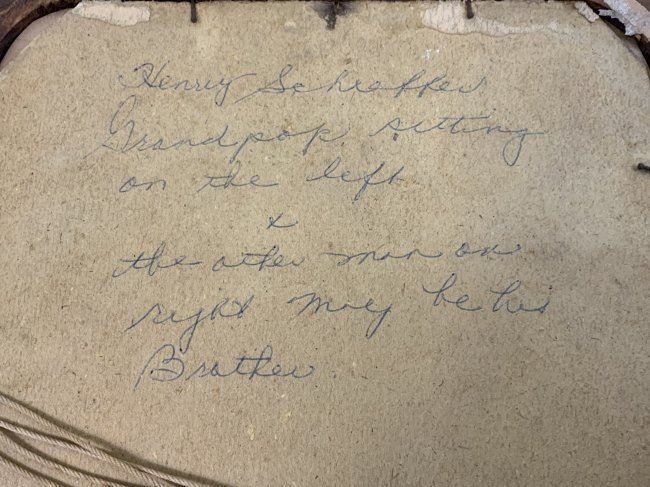 Henry Schreffler
Grandpop sitting
on the left
x
the other man on
right may be his
Brother.